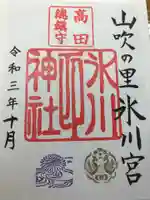 山吹の里 氷川宮
高田
總鎮守
氷川
神社
令和三年十月